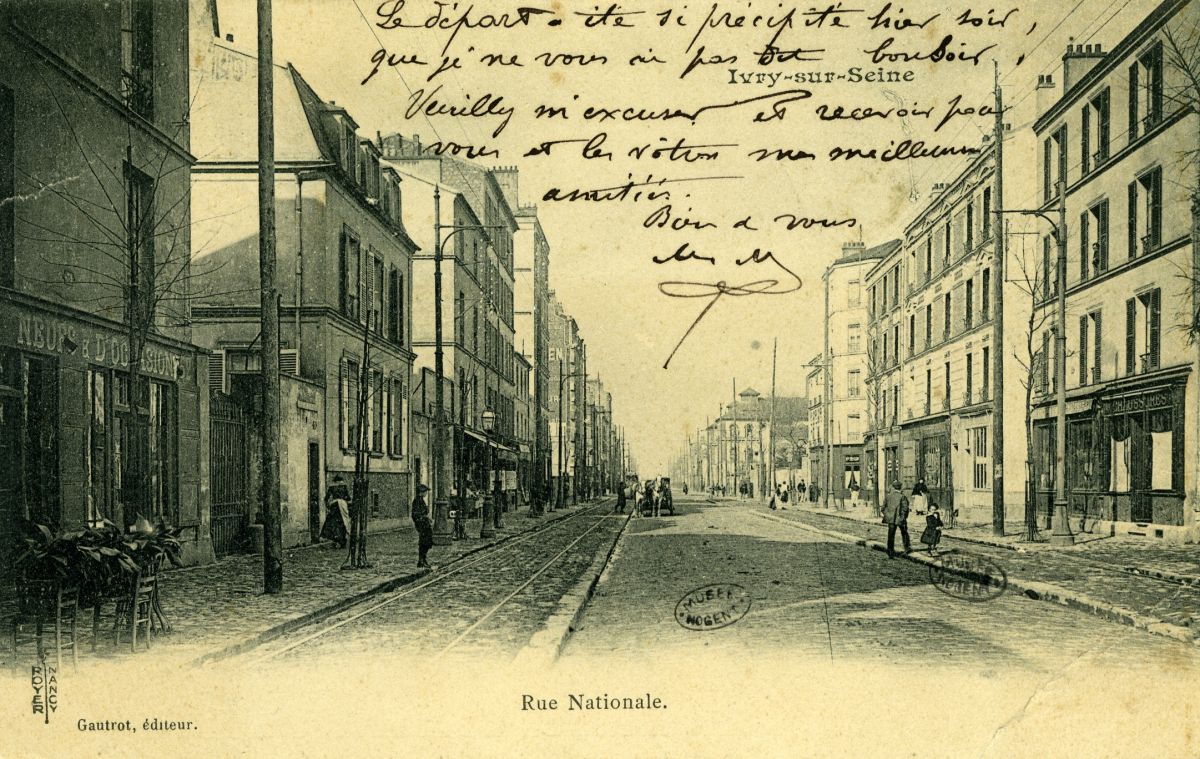 Le départ a été si précipité hier soir,
que je ne vous ai pas dit bonsoir,
Ivry-sur-Seine
Veuillez m'excuser et recevoir pour
vous et les vôtres mes meilleures
amitiés.
Bien à vous
NEUFS & D'OCCASIONS
MUSÉE
NOGENT
MUSÉE
NOGENT
ROYER
NANCY
Rue Nationale.
Gautrot, éditeur.